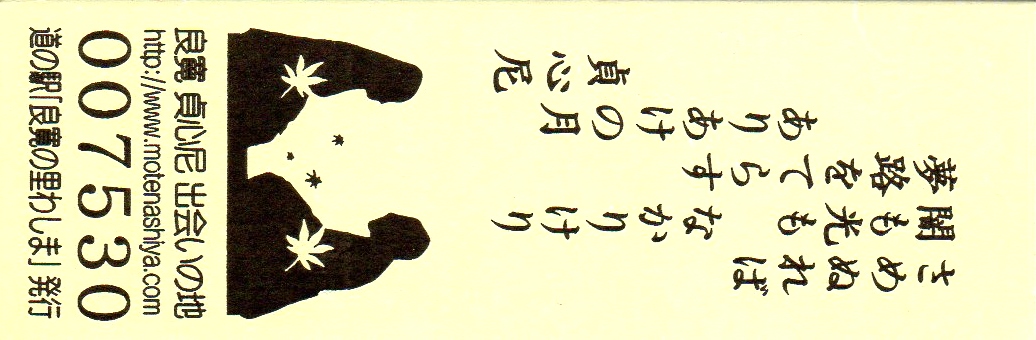 さめぬれば
闇も光も　なかりけり
夢路をてらす
ありあけの月
貞心尼
良寛 貞心尼 出会いの地
http://www.motenashiya.com
007530
道の駅「良寛の里わしま」発行